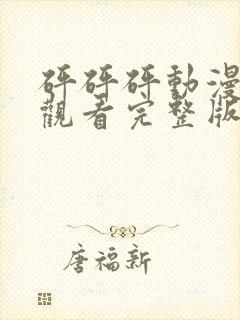 砰砰砰動漫
觀看完整版
唐福新